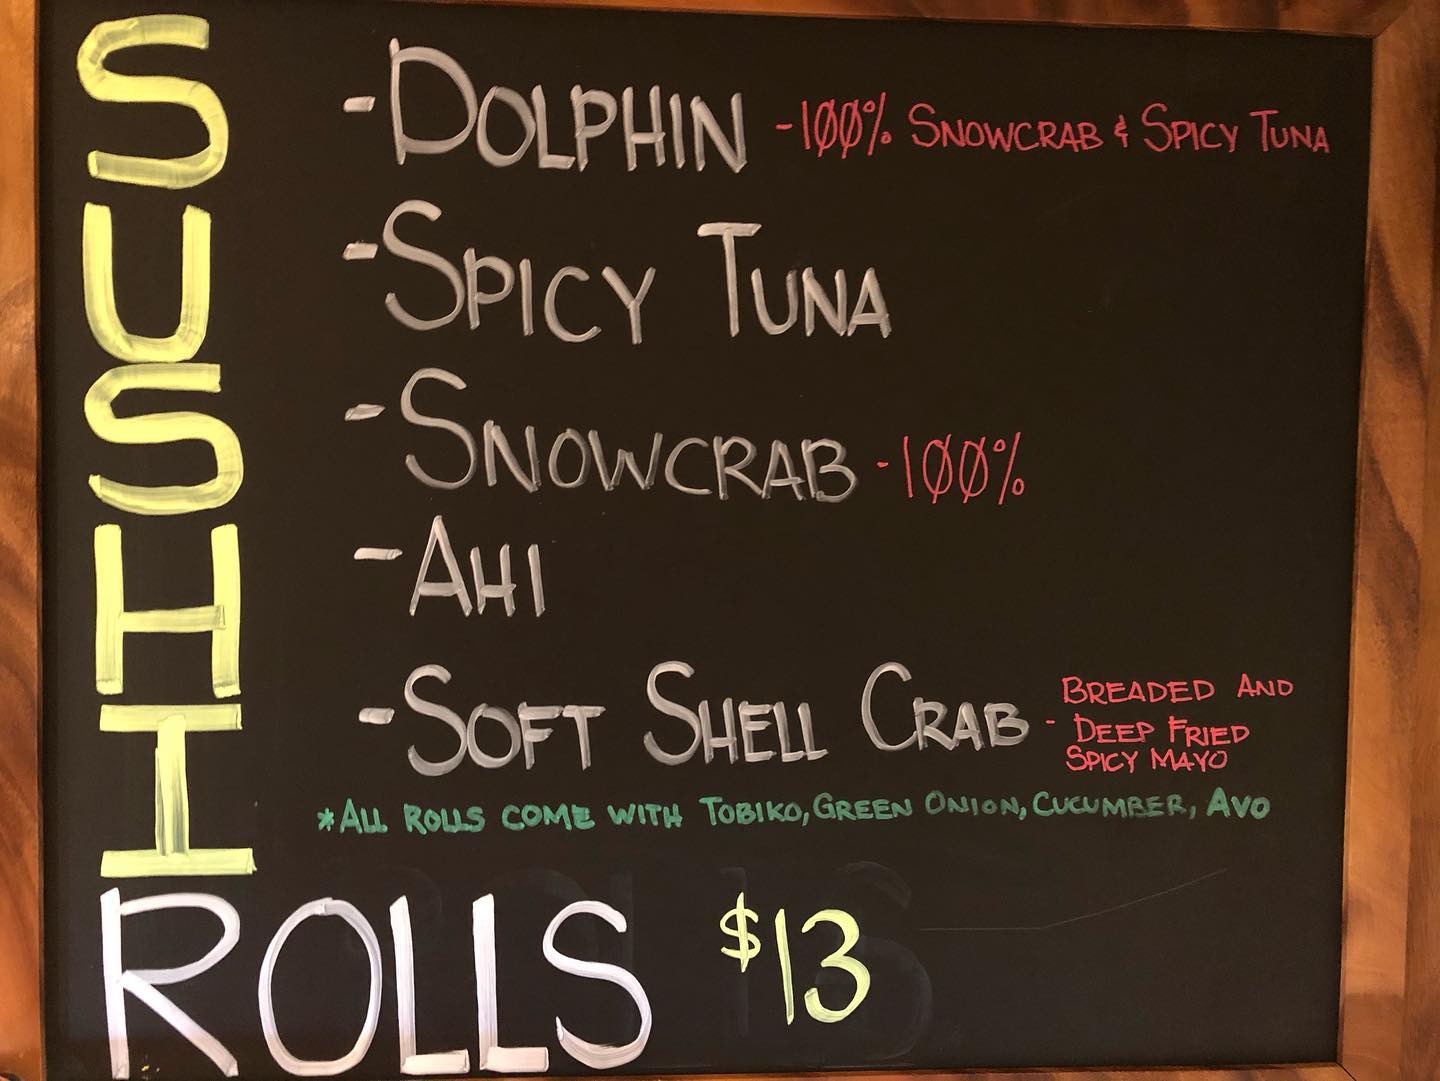 SUSHI
-DOLPHIN -100% SNOWCRAB & SPICY TUNA
-SPICY TUNA
-SNOWCRAB -100%
-AHI
-SOFT SHELL CRAB - BREADED AND
DEEP FRIED
SPICY MAYO
*ALL ROLLS COME WITH TOBIKO, GREEN ONION, CUCUMBER, AVO
ROLLS $13